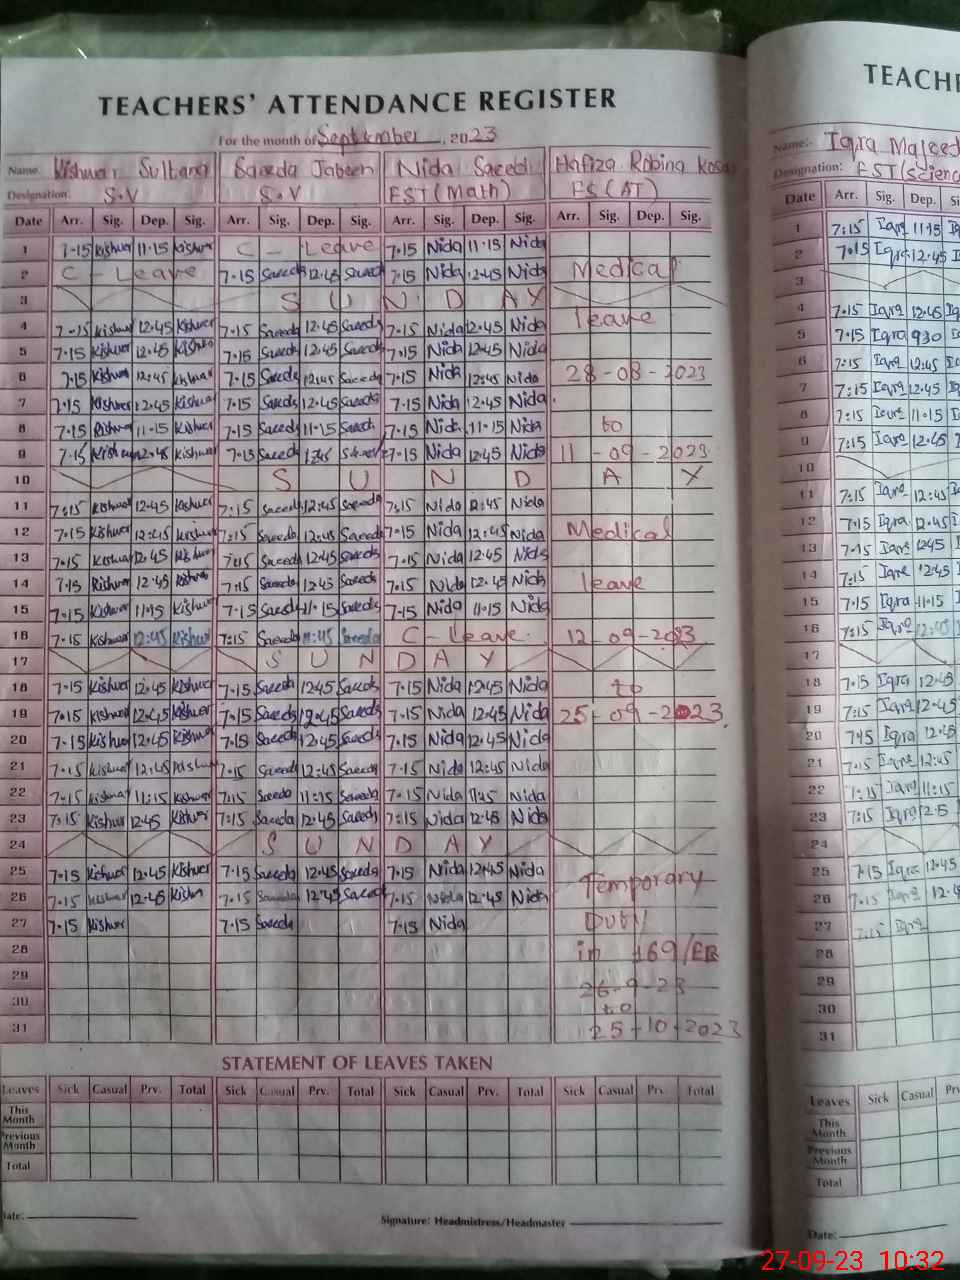 TEACHERS' ATTENDANCE REGISTER
For the month of September, 2023
Name Kishwar Sultana Saeeda Jabeen Nida Saeed Hafiza Robina
Designation: S.V S.V EST(Math) ES(AT)
Date Arr. Sig. Dep. Sig. Arr. Sig. Dep. Sig. Arr. Sig. Dep. Sig. Arr. Sig. Dep. Sig.
1 7.15 Kishwer 11.15 Kishwer C - Leave 7.15 Nida 11.15 Nida
2 C - Leave 7.15 Saeeda 12.45 Saeeda 7.15 Nida 12.45 Nida Medical
3 S U N D A Y
4 7.15 Kishwer 12.45 Kishwer 7.15 Saeeda 12.45 Saeeda 7.15 Nida 12.45 Nida leave
5 7.15 Kishwer 12.45 Kishwer 7.15 Saeeda 12.45 Saeeda 7.15 Nida 12.45 Nida
6 7.15 Kishwer 12:45 Kishwer 7.15 Saeeda 12:45 Saeeda 7.15 Nida 12:45 Nida 28-08-2023
7 7.15 Kishwer 12.45 Kishwer 7.15 Saeeda 12.45 Saeeda 7.15 Nida 12.45 Nida
8 7.15 Kishwer 11.15 Kishwer 7.15 Saeeda 11.15 Saeeda 7.15 Nida 11.15 Nida to
9 7.15 Kishwer 12.45 Kishwer 7.15 Saeed Nida 12.45 Nida 11-09-2023
10 S U N D A Y
11 7:15 Kishwer 12.45 Kishwer 7:15 Saeeda 12:45 Saeeda 7:15 Nida 12:45 Nida
12 7.15 Kishwer 12:45 Kishwer 7:15 Saeeda 12:45 Saeeda 7.15 Nida 12:45 Nida Medical
13 7.15 Kishwer 12.45 Kishwer 7:15 Saeeda 12.45 Saeeda 7.15 Nida 12.45 Nida
14 7.15 Kishwer 12.45 Kishwer 7:15 Saeeda 12.45 Saeeda 7.15 Nida 12.45 Nida leave
15 7.15 Kishwer 11.15 Kishwer 7.15 Saeeda 11.15 Saeeda 7.15 Nida 11.15 Nida
16 7.15 Kishwer 12:45 Kishwer 7:15 Saeeda Saeeda C - Leave 12-09-2023
17 S U N D A Y
18 7.15 Kishwer 12.45 Kishwer 7.15 Saeeda 12.45 Saeeda 7.15 Nida 12.45 Nida to
19 7.15 Kishwer 12.45 Kishwer 7.15 Saeeda 12.45 Saeeda 7.15 Nida 12.45 Nida 25-09-2023
20 7.15 Kishwer 12.45 Kishwer 7.15 Saeeda 12.45 Saeeda 7.15 Nida 12.45 Nida
21 7.15 Kishwer 12.45 Kishwer 7.15 Saeeda 12:45 Saeeda 7.15 Nida 12:45 Nida
22 7:15 Kishwer 11:15 Kishwer 7:15 Saeeda 11:15 Saeeda 7.15 Nida 11:15 Nida
23 7:15 Kishwer 12.45 Kishwer 7:15 Saeeda 12.45 Saeeda 7:15 Nida 12.45 Nida
24 S U N D A Y
25 7.15 Kishwer 12.45 Kishwer 7.15 Saeeda 12.45 Saeeda 7.15 Nida 12.45 Nida Temporary
26 7.15 Kishwer 12.45 Kishw 7.15 Saeeda 12.45 Saeeda 7.15 Nida 12.45 Nida
27 7.15 Kishwer 7.15 Saeeda 7.15 Nida Duty
28 in 169/EB
29 26-9-23
30 to
31 25-10-2023
STATEMENT OF LEAVES TAKEN
Leaves Sick Casual Prv. Total Sick Casual Prv. Total Sick Casual Prv. Total Sick Casual Prv. Total
This Month
Previous Month
Total
Date:
Signature: Headmistress/Headmaster
Name:- Iqra Majeed
Designation: EST(Science
Date Arr. Sig. Dep.
1 7:15 Iqra 11.15
2 7.15 Iqra 12.45
3
4 7.15 Iqra 12.45
5 7.15 Iqra 930
6 7.15 Iqra 12:45
7 7:15 Iqra 12.45
8 7:15 Iqra 11.15
9 7:15 Iqra 12.45
10
11 7:15 Iqra 12:45
12 7.15 Iqra 12.45
13 7.15 Iqra 1245
14 7:15 Iqra 12.45
15 7.15 Iqra 11.15
16 7:15 Iqra 12:45
17
18 7.15 Iqra 12.45
19 7:15 Iqra 12.45
20 745 Iqra 12.45
21 7.15 Iqra 12:45
22 7:15 Iqra 11:15
23 7:15 Iqra
24
25 7.15 Iqra 12.45
26 7.15 Iqra
27 7:15 Iqra
28
29
30
31
Leaves Sick Casual
This Month
Previous Month
Total
Date:
27-09-23 10:32